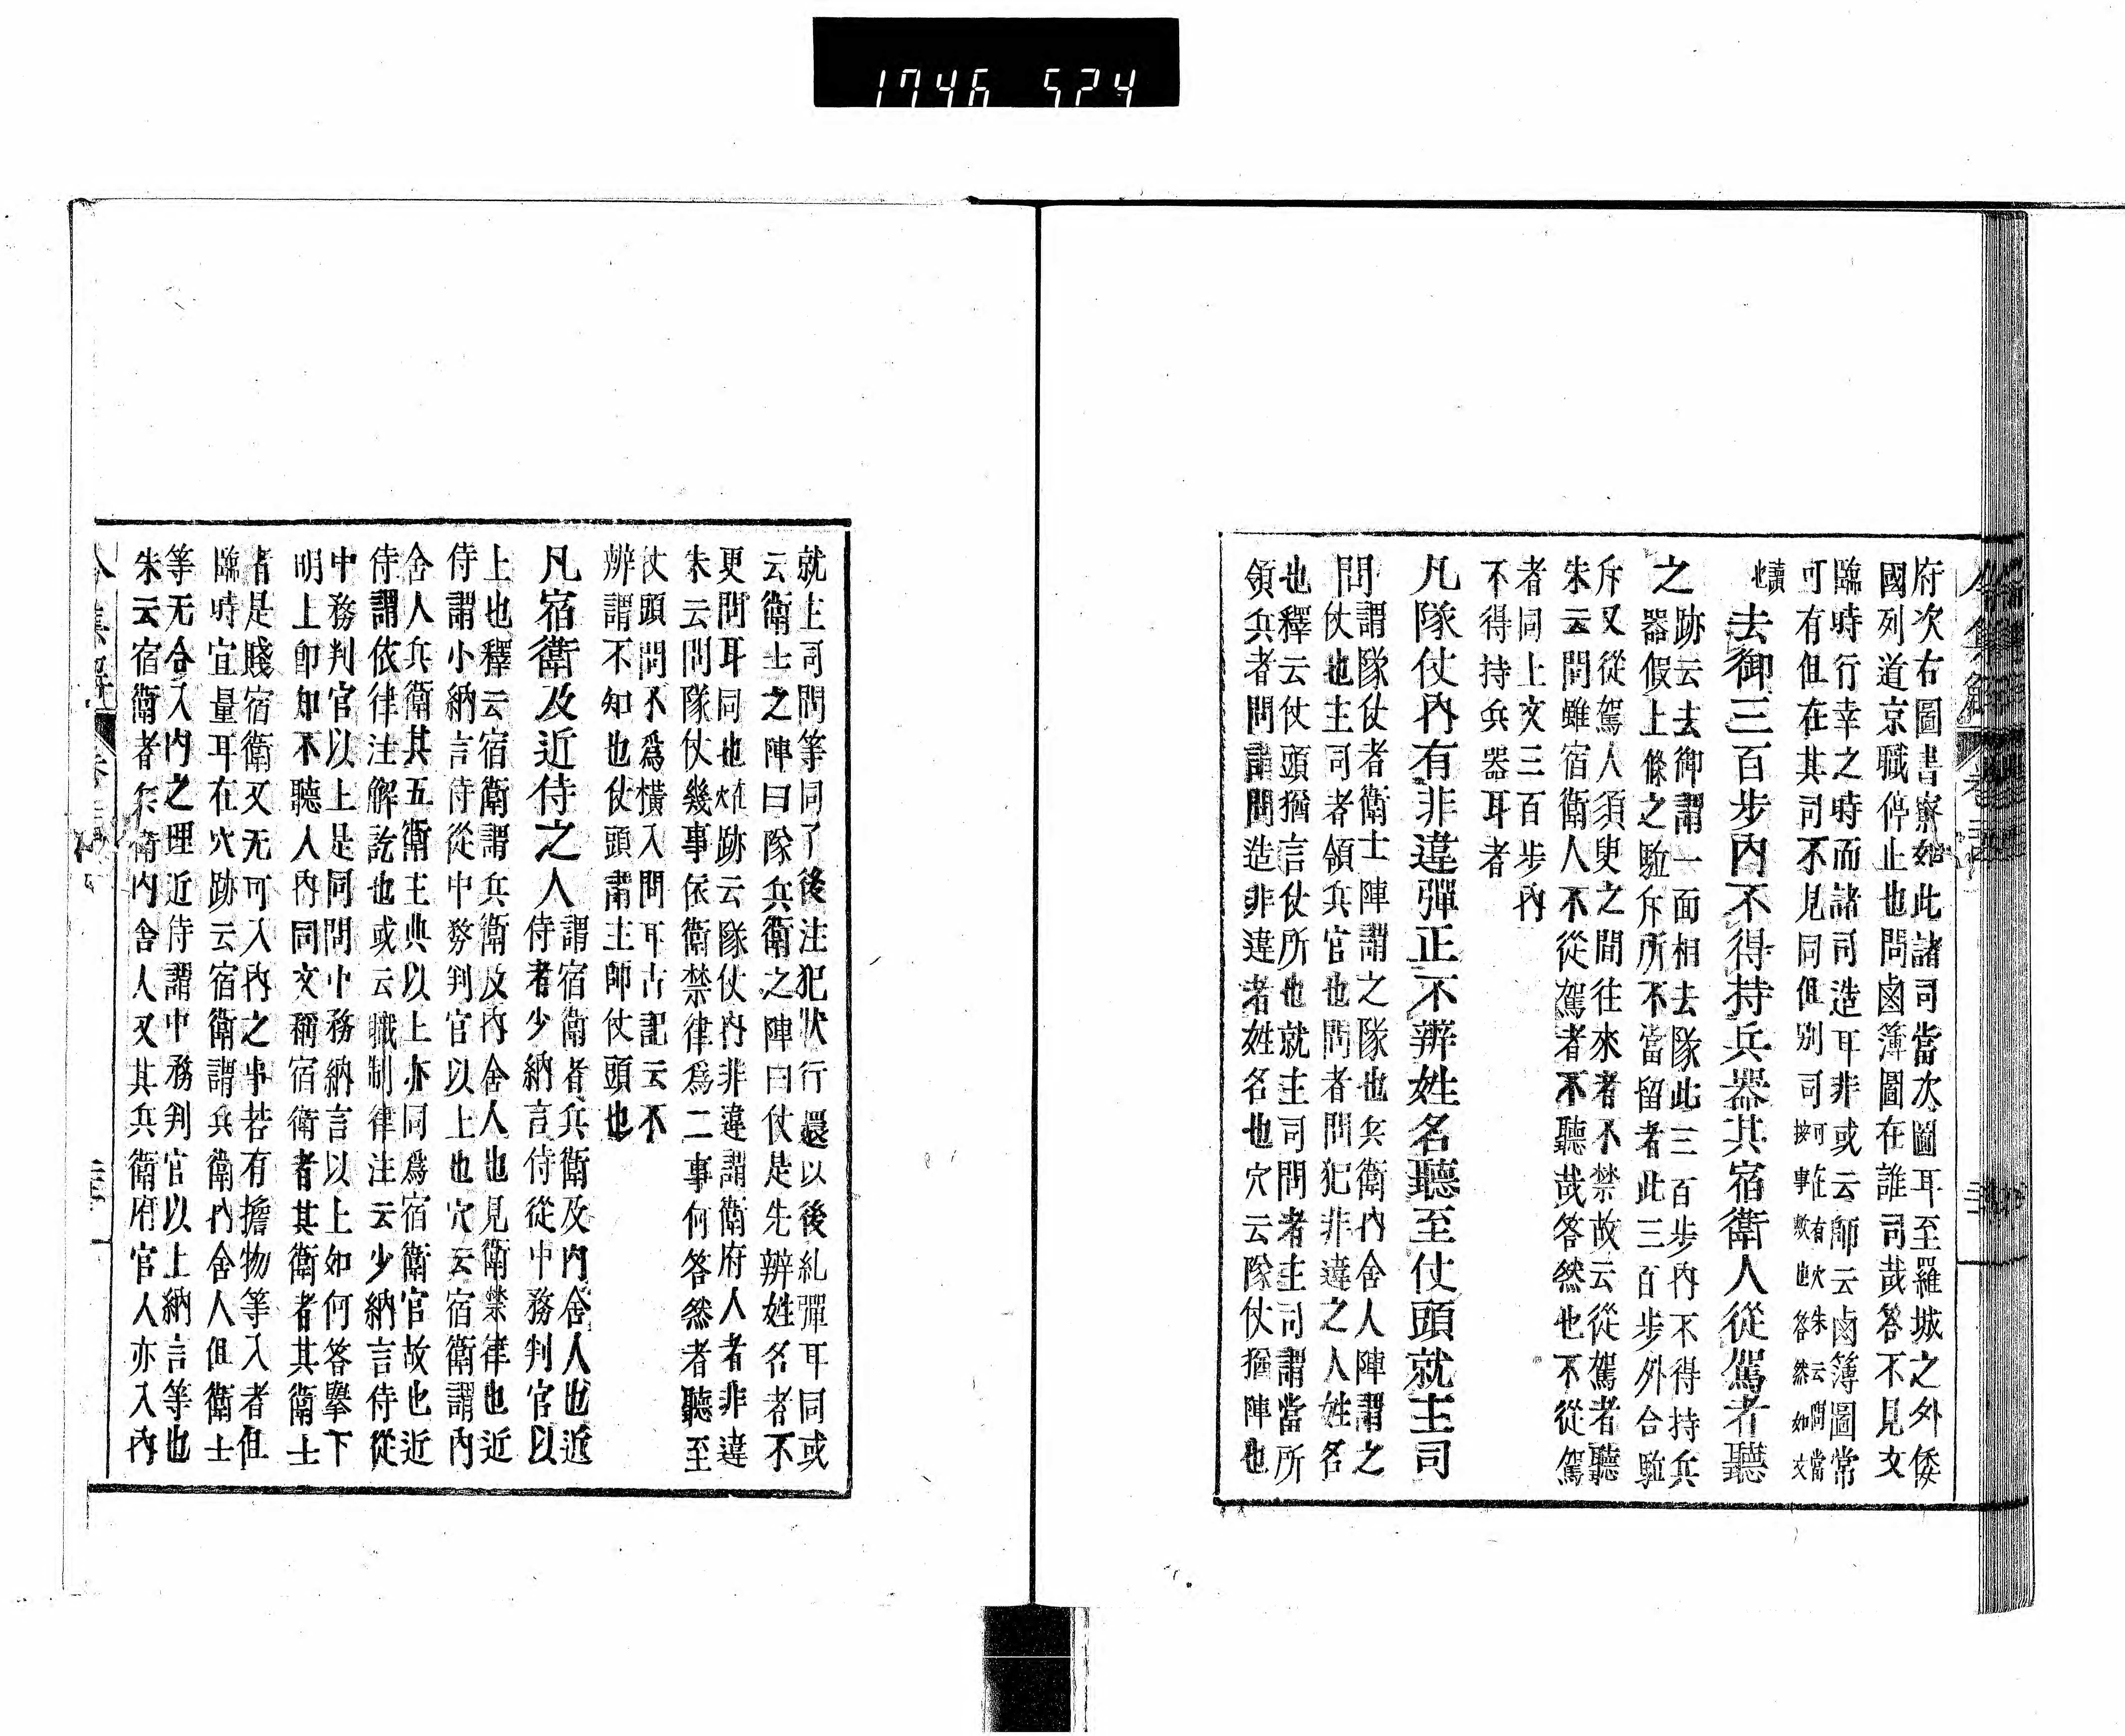 1746 524
令集解 卷二
府次右圖書寮如此諸司當次圖耳至羅城之外倭
國列道京職停止也問鹵簿圖在誰司哉答不見文
臨時行幸之時而諸司造耳非或云師云鹵簿圖常
可有但在其司不見同但別司可在有穴朱云問當
按事歟也答然如文
讀也
去御三百步內不得持兵器其宿衛人從駕者聽
之
跡云去御謂一面相去隊此三百步內不得持兵
器假上條之駈斥所不當留者此三百步外合駈
斥又從駕人須臾之間往來者不禁故云從駕者聽
朱云問雖宿衛人不從駕者不聽哉答然也不從駕
者同上文三百步內
不得持兵器耳者
凡隊仗內有非違彈正不辨姓名聽至仗頭就主司
問
謂隊仗者衛士陣謂之隊也兵衛內舍人陣謂之
仗也主司者領兵官也問者問犯非違之人姓名
也釋云仗頭猶言仗所也就主司問者主司謂當所
領兵者問謂問造非違者姓名也穴云隊仗猶陣也
就主司問等同了後注犯狀行還以後糺彈耳同或
云衛士之陣曰隊兵衛之陣曰仗是先辨姓名者不
更問耳同也在穴跡云隊仗內非違謂衛府人者非違
朱云問隊仗幾事依衛禁律爲二事何答然者聽至
仗頭問不爲橫入問耳古記云不
辨謂不知也仗頭謂主帥仗頭也
凡宿衛及近侍之人
謂宿衛者兵衛及內舍人也近
侍者少納言侍從中務判官以
上也釋云宿衛謂兵衛及內舍人也見衛禁律也近
侍謂小納言侍從中務判官以上也穴云宿衛謂內
舍人兵衛其五衛主典以上亦同爲宿衛官故也近
侍謂依律注解訖也或云職制律注云少納言侍從
中務判官以上是同問中務納言以上如何答擧下
明上卽知不聽人內同文稱宿衛者其衛者其衛士
者是賤宿衛又无可入內之事若有擔物等入者但
臨時宜量耳在穴跡云宿衛謂兵衛內舍人但衛士
等无合入內之理近侍謂中務判官以上納言等也
朱云宿衛者兵衛內舍人又其兵衛府官人亦入內